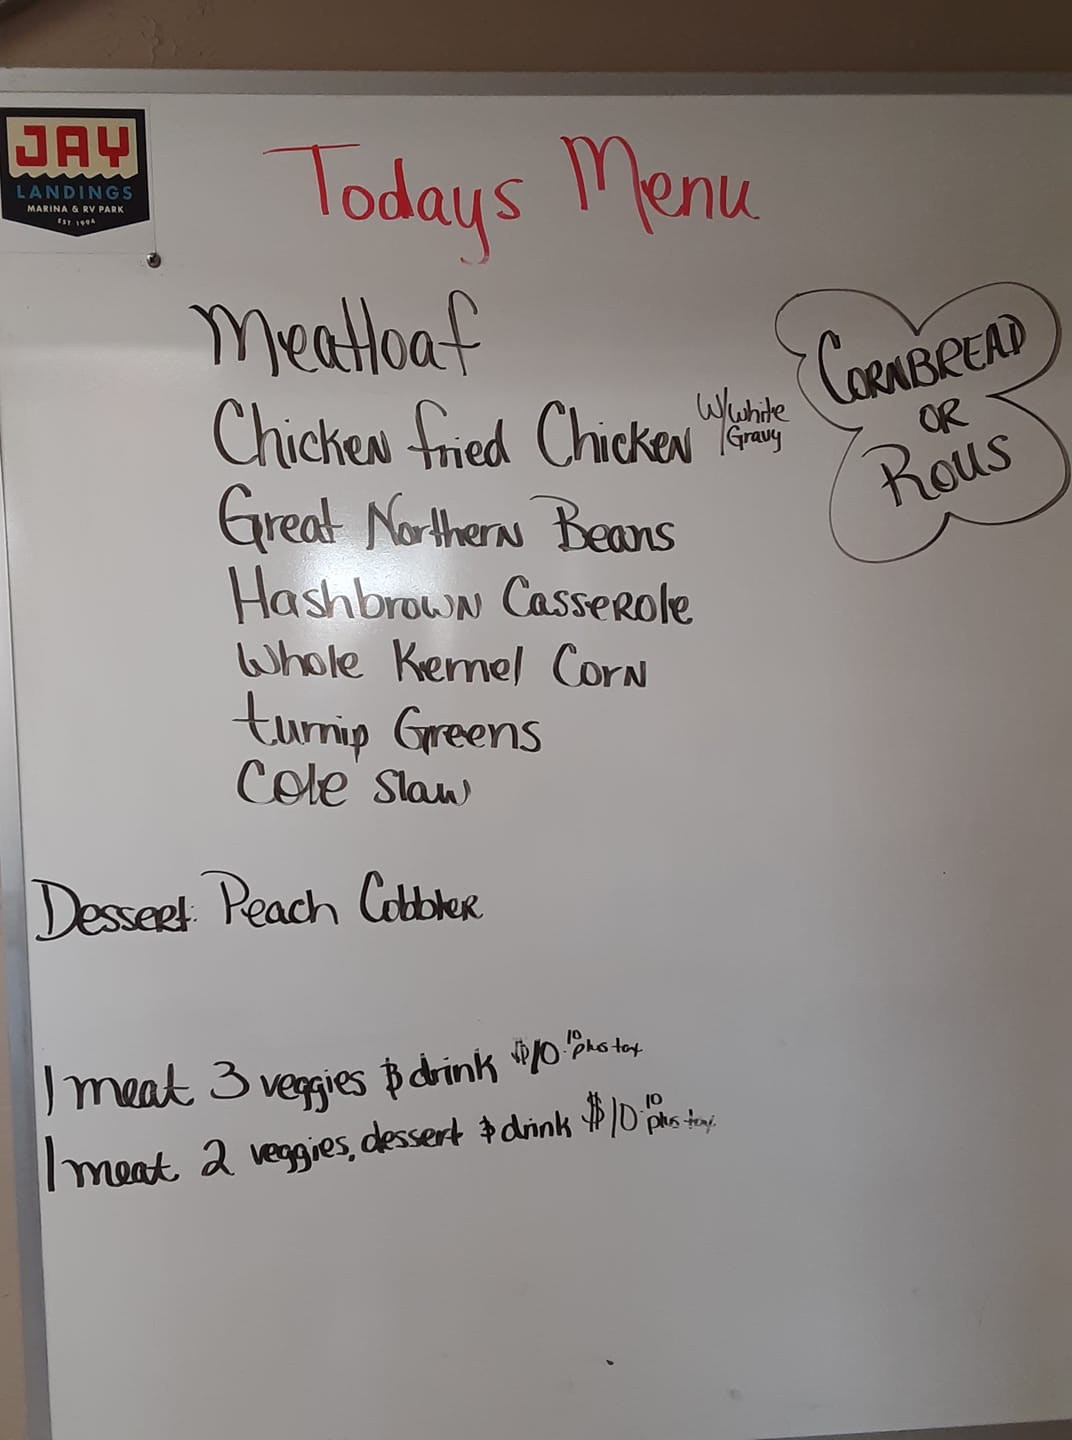 JAY
LANDINGS
MARINA & RV PARK
EST. 1994
Todays Menu
Meatloaf
Chicken fried Chicken w/white
Gravy
CORNBREAD
OR
Rolls
Great Northern Beans
Hashbrown Casserole
Whole Kernel Corn
turnip Greens
Cole slaw
Dessert: Peach Cobbler
1 meat 3 veggies & drink $10.10 plus tax
1 meat 2 veggies, dessert & drink $10.10 plus tax